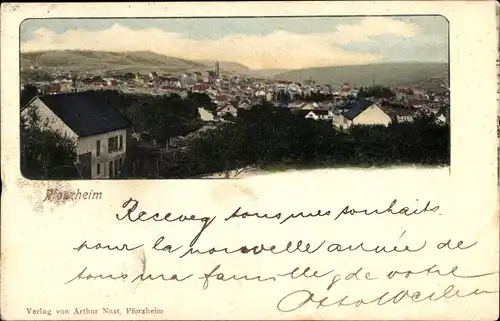 Pforzheim
Recevez tous mes souhaits
pour la nouvelle année de
tous ma famille & de votre
Otto
Verlag von Arthur Nast, Pforzheim